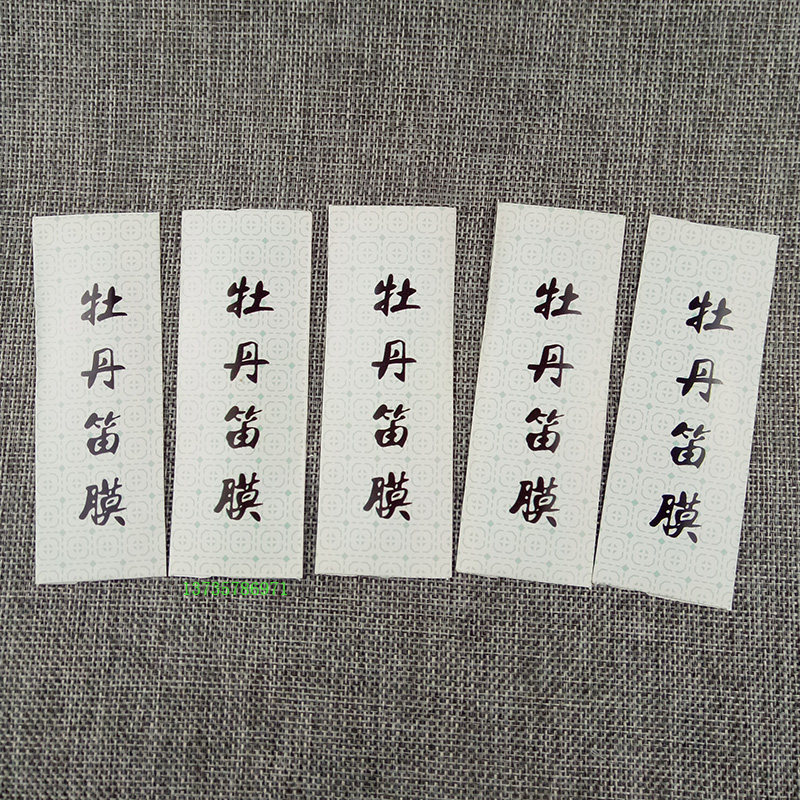 牡丹笛膜
牡丹笛膜
牡丹笛膜
牡丹笛膜
牡丹笛膜
13735786971